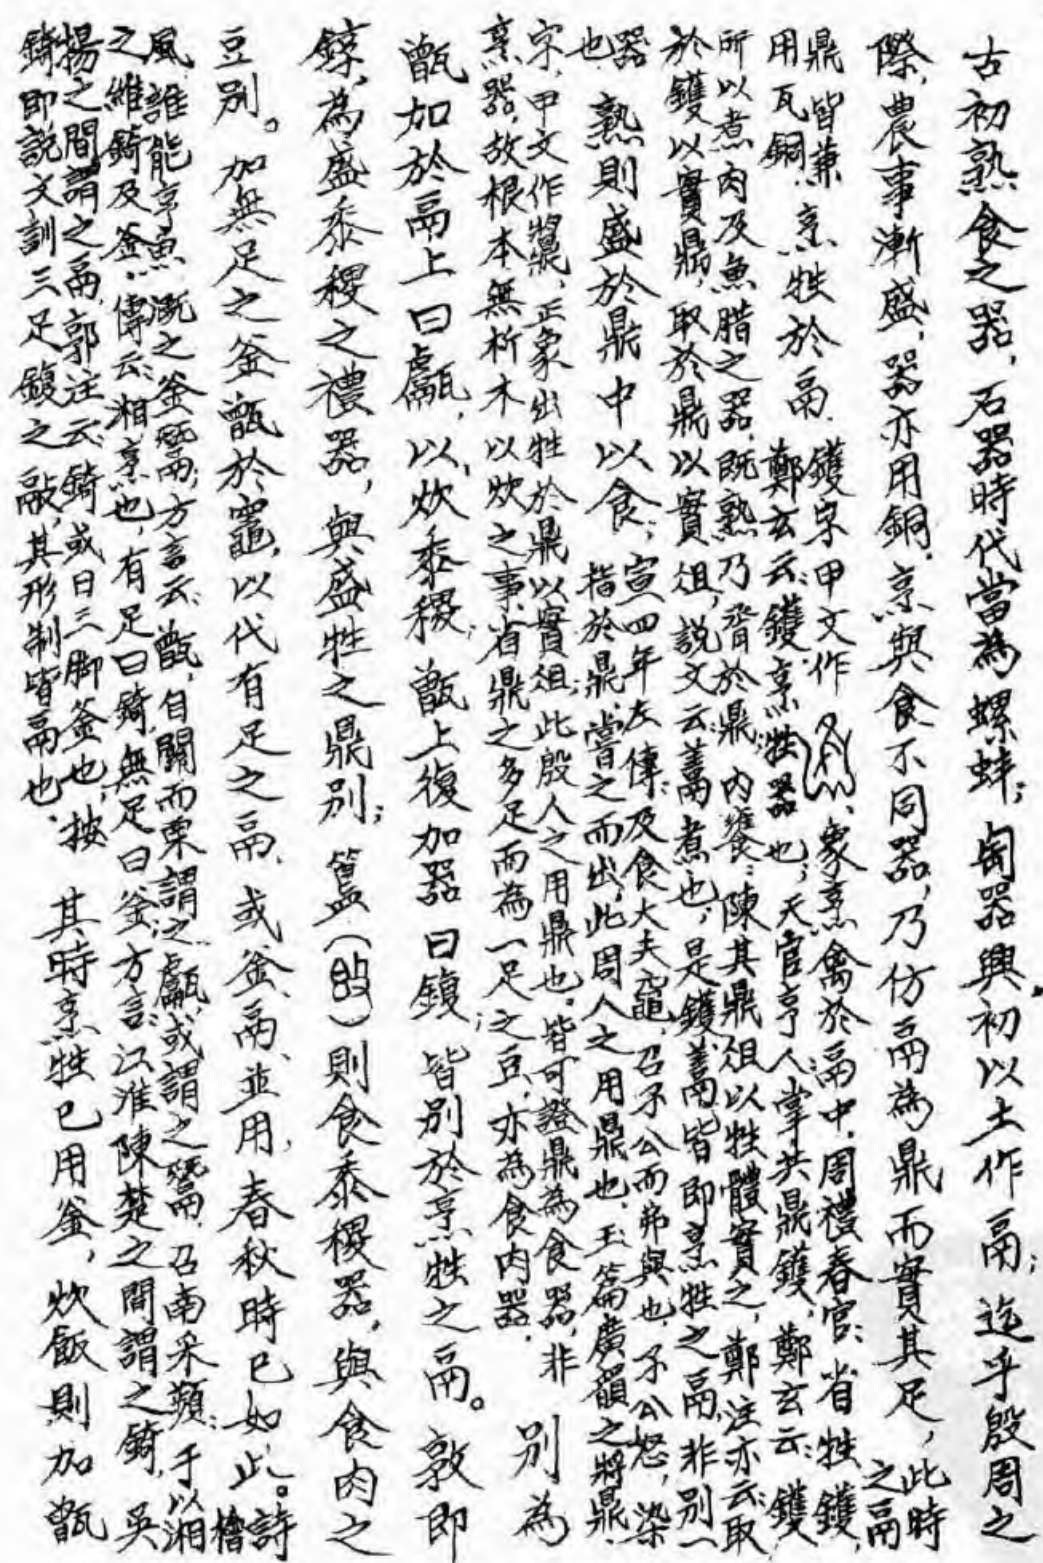 古初熟食之器，石器時代當為螺蚌；匋器興初以土作鬲；迄乎殷周之
際，農事漸盛，器亦用銅。烹與食不同器，乃仿鬲為鼎而實其足，此時
之鬲
鼎皆兼
用瓦銅。烹牲於鬲，鑊字甲文作，象烹禽於鬲中，周禮春官：省牲鑊，
鄭玄云：鑊烹牲器也；天官亨人掌共鼎鑊，鄭玄云：鑊
所以煮肉及魚腊之器，既熟乃脀於鼎；內饔：陳其鼎俎以牲體實之，鄭注亦云：取
於鑊以實鼎，取於鼎以實俎，說文云：鬺煮也，是鑊鬺皆即烹牲之鬲，非別一
器
也。熟則盛於鼎中以食；宣四年左傳：及食大夫黿，召子公而弗與也，子公怒，染
指於鼎，嘗之而出，此周人之用鼎也，玉篇廣韻之鼎，
字，甲文作，正象出牲於鼎以實俎，此殷人之用鼎也。皆可證鼎為食器，非
烹器，故根本無析木以炊之事，省鼎之多足而為一足之豆，亦為食肉器。
別為
甑如於鬲上曰甗，以炊黍稷，甑上復加器曰鍑；皆別於烹牲之鬲。敦即
錞，為盛黍稷之禮器，與盛牲之鼎別；簋()則食黍稷器，與食肉之
豆別。加無足之釜甑於竈，以代有足之鬲，或釜鬲並用，春秋時已如此。詩
檜
風誰能亨魚，溉之釜鬵，方言云：甑，自關而東謂之甗，或謂之鬵，召南采蘋：于以湘
之維錡及釜，傳云：湘，烹也，有足曰錡，無足曰釜，方言：江淮陳楚之間謂之錡，吳
揚之間謂之鬲，郭注云：錡或曰三腳釜也，按
錡即說文訓三足鍑之敲，其形制皆鬲也。
其時烹牲已用釜，炊飯則加甑